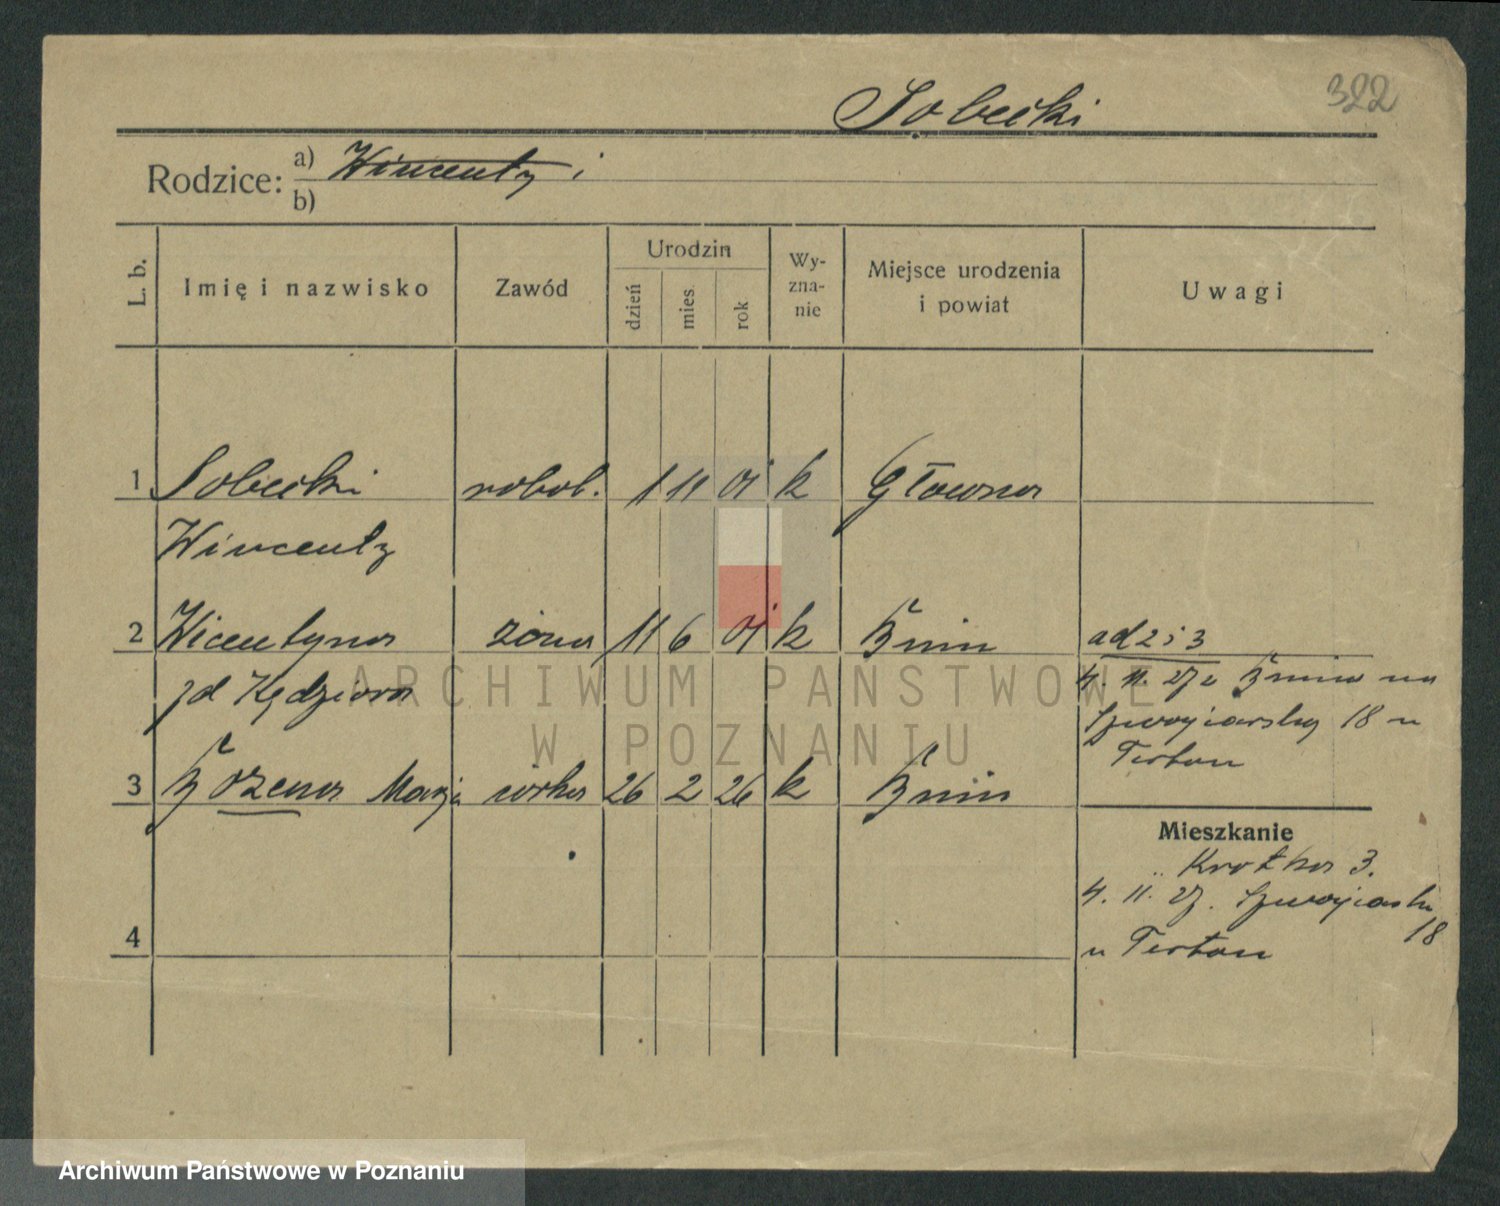 322
Sobecki
Rodzice: a) Wincenty i
b)
L. b.
Imię i nazwisko
Zawód
Urodzin
dzień
mies.
rok
Wy-
zna-
nie
Miejsce urodzenia
i powiat
Uwagi
1 Sobecki robot. 1 11 01 k Główna
Wincenty
2 Wicentyna żona 11 6 01 k Żnin ad 2 i 3
zd Kędziora 4. 11. 27 z Żnina na
18 u
3 Bożena Marja córka 26 2 26 k Żnin
Mieszkanie
Krótka 3.
4. 11. 27.
18
u
4
ARCHIWUM PAŃSTWOWE
W POZNANIU
Archiwum Państwowe w Poznaniu